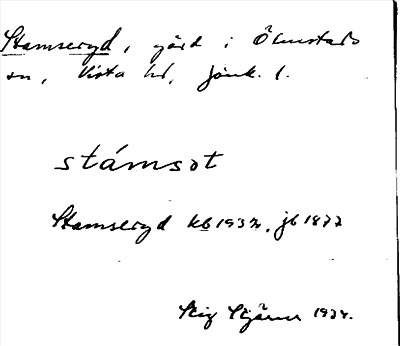 Stamseryd, gård i Ölmstads
sn, Vista hd, Jönk. l.
stámsət
Stamseryd kb 1932, jb 1877
Stig
1934.